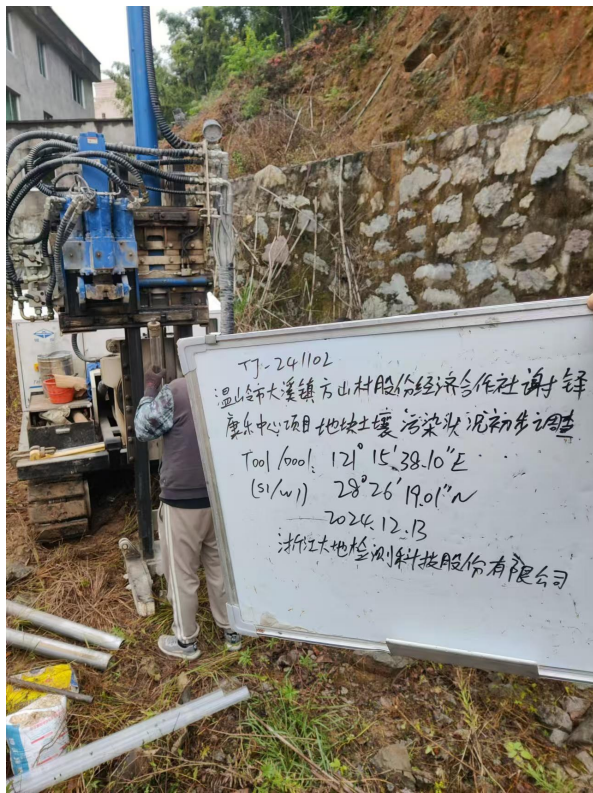 TJ-241102
温岭市大溪镇方山村股份经济合作社谢铎
康乐中心项目地块土壤污染状况初步调查
T001/D001: 121°15′38.10″E
(S1/W1) 28°26′19.01″N
2024.12.13
浙江大地检测科技股份有限公司